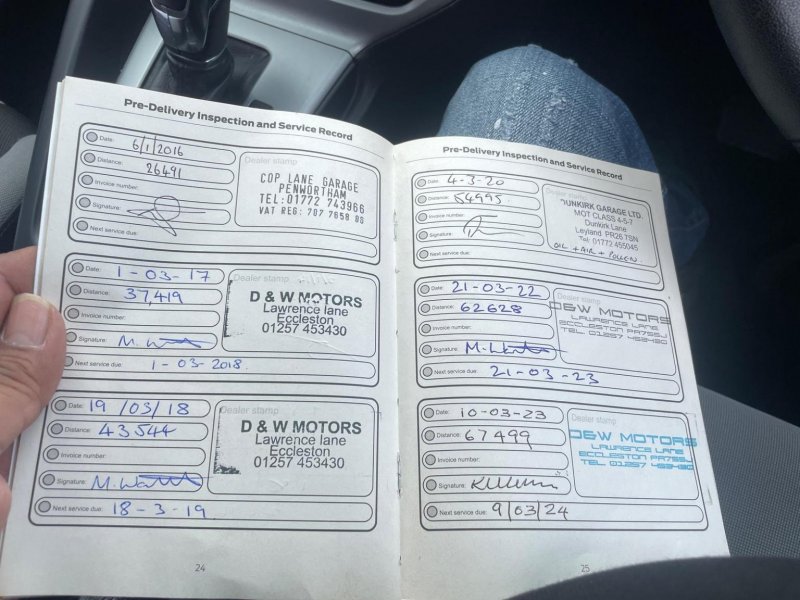 Pre-Delivery Inspection and Service Record
Date: 6/1/2016
Distance: 26491
Invoice number:
Signature:
Next service due:
Dealer stamp
COP LANE GARAGE
PENWORTHAM
TEL:01772 743966
VAT REG: 707 7658 05
Date: 1-03-17
Distance: 37,419
Invoice number:
Signature:
Next service due: 1-03-2018
Dealer stamp
D & W MOTORS
Lawrence lane
Eccleston
01257 453430
Date: 19/03/18
Distance: 43544
Invoice number:
Signature:
Next service due: 18-3-19
Dealer stamp
D & W MOTORS
Lawrence lane
Eccleston
01257 453430
24
Pre-Delivery Inspection and Service Record
Date: 4-3-20
Distance: 54995
Invoice number:
Signature:
Next service due:
Dealer stamp
DUNKIRK GARAGE LTD.
MOT CLASS 4-5-7
Dunkirk Lane
Leyland PR26 7SN
Tel: 01772 455045
OIL + AIR + POLLEN.
Date: 21-03-22
Distance: 62628
Invoice number:
Signature:
Next service due: 21-03-23
Dealer stamp
D&W MOTORS
LAWRENCE LANE
ECCLESTON PR75SJ
TEL. 01257 453430
Date: 10-03-23
Distance: 67499
Invoice number:
Signature:
Next service due: 9/03/24
Dealer stamp
D&W MOTORS
LAWRENCE LANE
ECCLESTON PR75SJ
TEL. 01257 453430
25